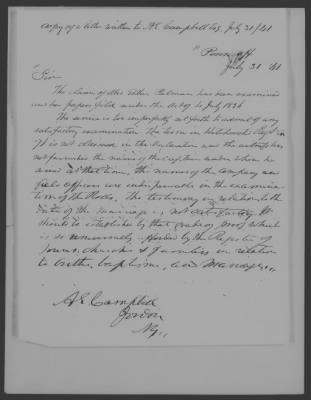 Copy of a letter written to A C Campbell Esq. July 31/41
"Pension Off
July 31 '41
"Sir
The claim of Mrs Esther Putman has been examined
under papers filed under the act 4 July 1836
The service is too imperfectly set forth to admit of any
satisfactory examination. The term in Hitchcock's Regt in
'76 is not in the declaration and the
not furnishes the name of the Captain under whom he
served at that time, the names of the company and
field officers are indispensable in the examina-
tion of the Rolls. The testimony in relation to the
date of the marriage is not satisfactory. It
should be established by that grade of proof which
is so universally afforded by the Registers of
Towns, churches & families in relation
to births, baptisms, and Marriages,,
A C Campbell
Ny,,